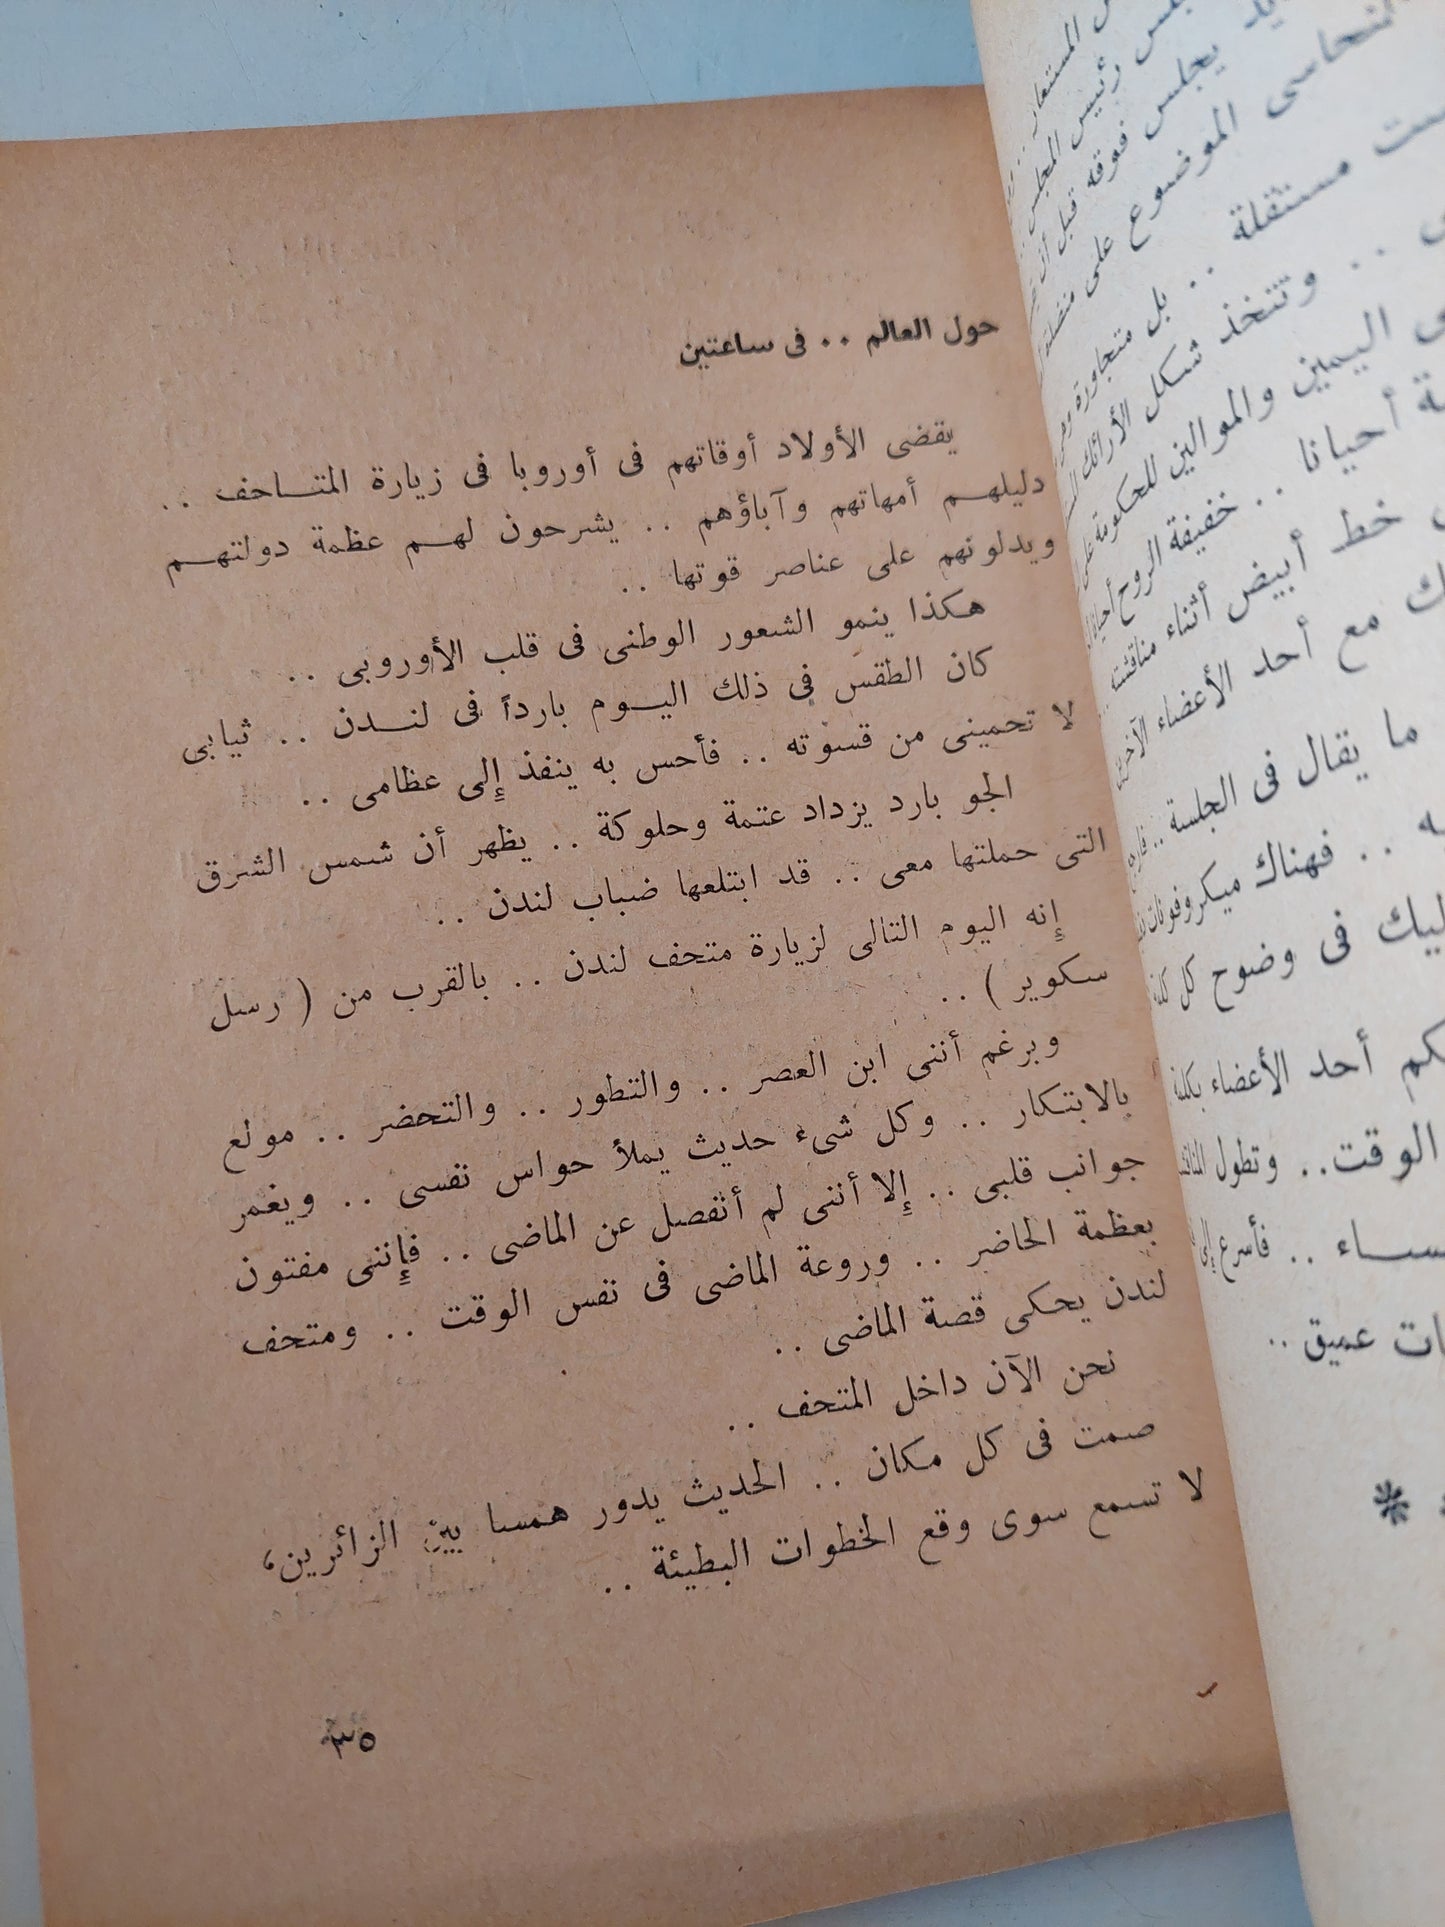 حول العالم . . فى ساعتين
يقضى الأولاد أوقاتهم فى أوروبا فى زيارة المتـاحف . .
دليلهـم أمهاتهم وآباؤهم . . يشرحون لهـم عظمة دولتهـم
ويدلونهم على عناصر قوتها . .
هكذا ينمو الشعور الوطنى فى قلب الأوروبى . .
كان الطقس فى ذلك اليـوم بارداً فى لنـدن . . ثيابى
لا تحمينى من قسوته . . فأحس به ينفذ إلى عظامى . .
الجو بارد يزداد عتمة وحلوكة . . يظهر أن شمس الشرق
التى حملتها معى . . قد ابتلعها ضباب لندن . .
إنه اليوم التالى لزيارة متحف لندن . . بالقرب من ( رسل
سكوير ) . .
وبرغم أننى ابن العصر . . والتطور . . والتحضر . . مولع
بالابتكار . . وكل شىء حديث يملأ حواس نفسى . . ويغمر
جوانب قلبى . . إلا أننى لم أنفصل عن الماضى . . فإننى مفتون
بعظمة الحاضر . . وروعة الماضى فى نفس الوقت . . ومتحف
لندن يحكى قصة الماضى . .
نحن الآن داخل المتحف . .
صمت فى كل مكان . . الحديث يدور همسا بين الزائرين،
لا تسمع سوى وقع الخطوات البطيئة . .
٣٥
المستعار . .
رئيس المجلس
يجلس فوقه قبل أن
الموضوع على منضدة
مستقلة . . بل متجاورة
. . وتتخذ شكل الأرائك
اليمين والموالين للحكومة على
أحيانا . . خفيفة الروح أحيانا
خط أبيض أثناء
مع أحد الأعضاء
ما يقال فى الجلسة . .
. . فهناك ميكروفونات
فى وضوح كل
أحد الأعضاء بكلمة
الوقت . . وتطول
. . فأسرع إلى
عميق . .
*